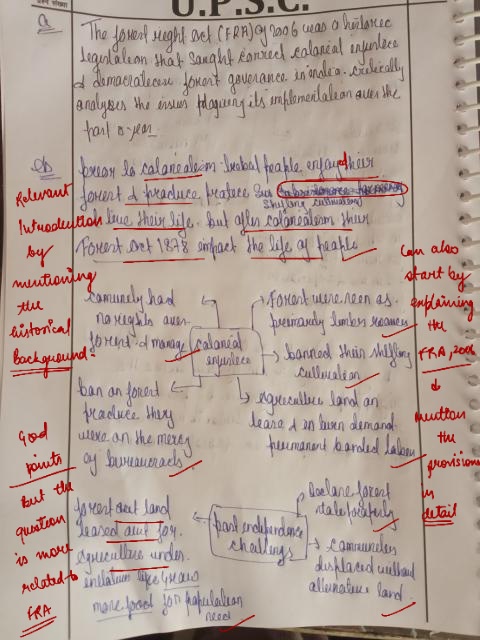 U.P.S.C.
Q
The forest right act (FRA) of 2006 was a historec
legislation that sought correct colonial injustece
& democratecese forest governance in india. critically
analyses the issues plaguing its implementation over the
past
prear to colonealism tribal people enjoyed their
forest & produce, practece
shifting cultivation
live their life. but after colonealism their
Forest act 1878 impact the life of people
Relevant
Introduction
by
mentioning
the
historical
Background.
can also
start by
explaining
the
FRA, 2006
&
mention
the
provisions
in
detail
community had
no rights over
forest & manage
colonial
injustece
Forest were seen as
premarily timber
banned their shifting
cultivation
ban on forest
produce they
were on the mercy
of bureaucrats
agriculture land on
lease & on
permanent bonded labour
Good
points
But the
question
is more
related to
FRA
forest out land
leased out for
agriculture under
like Grow
more food for population
need
post independence
challenges
Declare forest
state property
communetes
displaced without
alternative land.